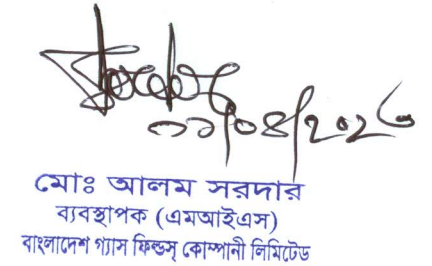 ০১/০৪/২০২৬
মোঃ আলম সরদার
ব্যবস্থাপক (এমআইএস)
বাংলাদেশ গ্যাস ফিল্ডস্ কোম্পানী লিমিটেড